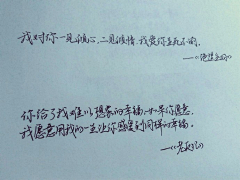 我对你一见倾心，二见倾情，我爱你至死不渝。
你给了我难以想象的幸福，如果你愿意，
我愿意用我的一生让你感受到同样的幸福。